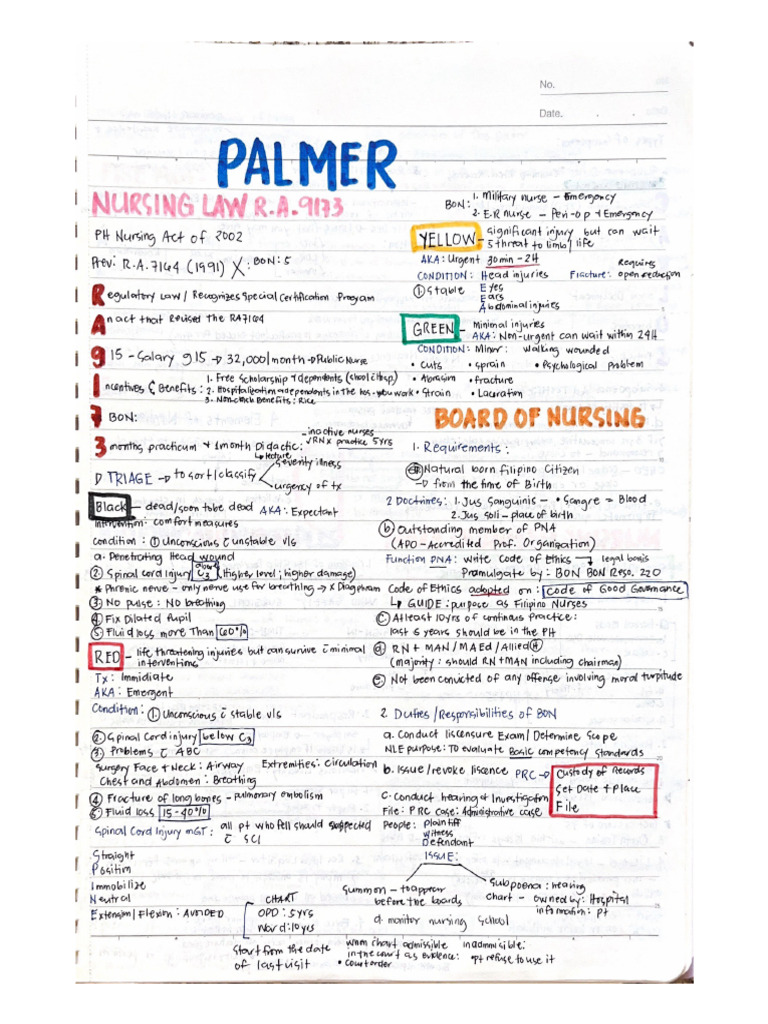 No.
Date.
PALMER
NURSING LAW R.A.9173
PH Nursing Act of 2002
Prev: R.A.7164 (1991) X: BON: 5
Regulatory Law / Recognizes Special Certification Program
An act that Revised the RA7164
915 - Salary g15 → 32,000/month → Public Nurse
Incentives & Benefits: 1. Free Scholarship + dependents (school & hosp)
2. Hospitalization + dependents in the hos. you work
3. Non-cash Benefits: Rice
7 BON:
3 months practicum + 1 month Didactic:
- inactive nurses
√RN x practice 5yrs
↳ lecture
D TRIAGE → to sort / classify
severity illness
urgency of tx
Black - dead/soon to be dead AKA: Expectant
Intervention: comfort measures
condition: ① Unconscious c̄ unstable v/s
a. Penetrating Head wound
② Spinal cord Injury above C3 (Higher level; higher damage)
* Phrenic nerve - only nerve use for breathing → x Diaphram
③ No pulse: No breathing
④ Fix Dilated Pupil
⑤ Fluid loss more Than 60%
RED - life threatening injuries but can survive c̄ minimal
interventions
Tx: Immidiate
AKA: Emergent
Condition: ① Unconscious c̄ stable v/s
② Spinal Cord injury below C3
③ Problems c̄ ABC
Surgery Face + Neck: Airway Extremities: circulation
Chest and Abdomen: Breathing
④ Fracture of long bones - pulmonary embolism
⑤ Fluid loss 15-40%
Spinal Cord Injury mGT: all pt who fell should suspected
c̄ SCI
Straight
Position
Immobilize
Neutral
Extension/Flexion: AVOIDED
CHART
OPD: 5yrs
Ward: 10yrs
Start from the date
of last visit
BON: 1. Military nurse - Emergency
2. E.R Nurse - Peri-op + Emergency
YELLOW - significant injury but can wait
s threat to limb / life
AKA: Urgent 30min - 2H
CONDITION: Head injuries
① Stable Eyes
Ears
Abdominal injuries
Requires
Fracture: open reduction
GREEN - minimal injuries
AKA: Non-Urgent can wait within 24H
CONDITION: Minor: walking wounded
• cuts • sprain • Psychological problem
• Abrasion • fracture
• Strain • Laceration
BOARD OF NURSING
1. Requirements:
ⓐ Natural born Filipino Citizen
→ from the time of Birth
2 Doctrines: 1. Jus Sanguinis - • Sangre = Blood
2. Jus soli - place of birth
ⓑ Outstanding member of PNA
(APO - Accredited Prof. Organization)
Function PNA: write Code of Ethics → legal basis
Promulgate by: BON BON Reso. 220
Code of Ethics adopted on: Code of Good Governance
↳ GUIDE: purpose as Filipino Nurses
ⓒ Atleast 10yrs of continous practice:
last 5 years should be in the PH
ⓓ RN + MAN / MAEd / Allied H
(majority: should RN + MAN including chairman)
ⓔ Not been convicted of any offense involving moral turpitude
2 Duties / Responsibilities of BON
a. Conduct liscensure Exam / Determine Scope
NLE purpose: TO evaluate Basic competency standards
b. Issue / revoke liscence PRC → Custody of Records
Set Date + Place
File
c. Conduct hearing + Investigation
File: PRC case: Administrative case
People: Plaintiff
Witness
Defendant
ISSUE:
Summon - to appear
before the boards
Subpoena: hearing
chart - owned by: Hospital
information: pt
d. monitor nursing school
when chart admissible
in the court as evidence:
• court order
inadmissible:
pt refuse to use it